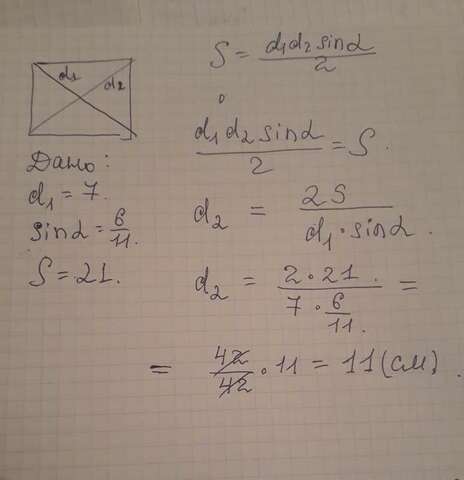 d₁
d₂
Дано:
d₁ = 7.
sinα = 6/11.
S = 21.
S = d₁d₂ sinα / 2
d₁ d₂ sinα / 2 = S.
d₂ = 2S / d₁ · sinα.
d₂ = 2 · 21. / 7 · 6/11. =
= 42/42 · 11 = 11 (см).